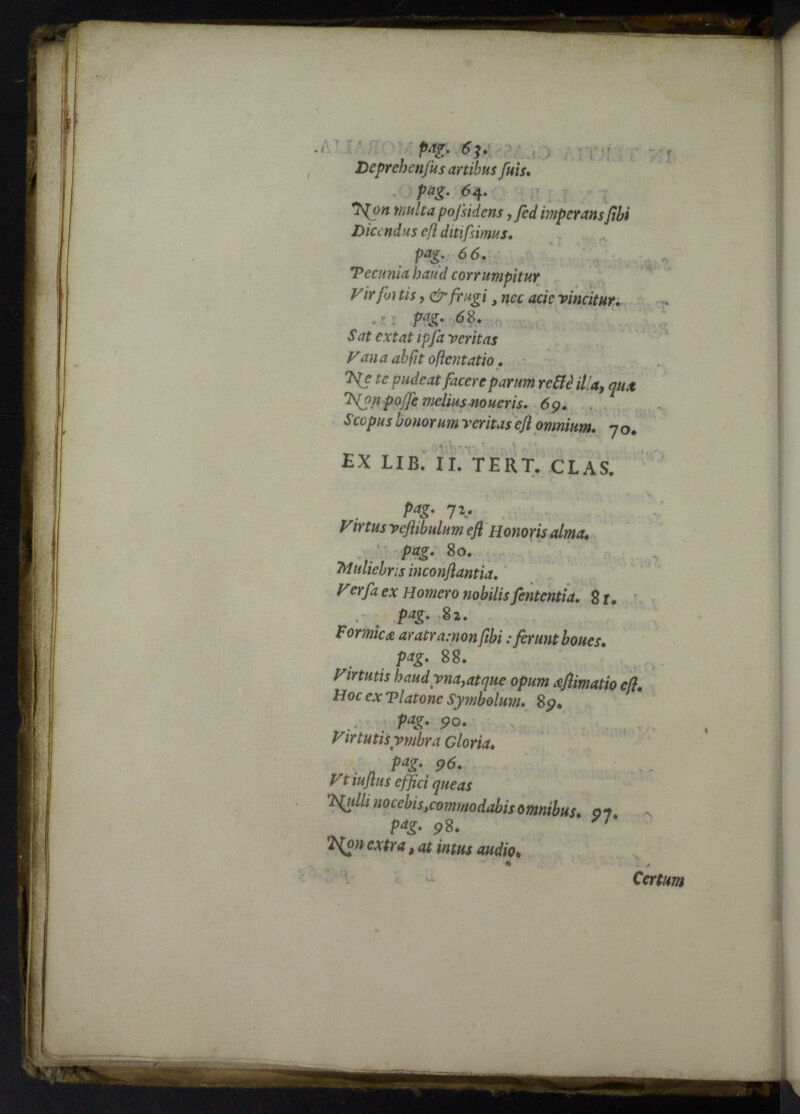 pag. 63.
Deprehenſus artibus ſuis.
pag. 64.
Non multa poſsidens, ſed imperans ſibi
Dicendus eſt ditiſsimus.
pag. 66.
Pecunia haud corrumpitur
Vir fortis, & frugi, nec acie vincitur.
pag. 68.
Sat extat ipſa veritas
Vana abſit oſtentatio.
Ne te pudeat facere parum rectè illa, quæ
Non poſſe melius noueris. 69.
Scopus bonorum veritas eſt omnium. 70.
EX LIB. II. TERT. CLAS.
pag. 72.
Virtus veſtibulum eſt Honoris alma.
pag. 80.
Muliebris inconſtantia.
Verſa ex Homero nobilis ſententia. 81.
pag. 82.
Formicæ aratra: non ſibi: ferunt boues.
pag. 88.
Virtutis haud vna, atque opum æſtimatio eſt.
Hoc ex Platone Symbolum. 89.
pag. 90.
Virtutis vmbra Gloria.
pag. 96.
Vt iuſtus effici queas
Nulli nocebis, commodabis omnibus. 97.
pag. 98.
Non extra, at intus audio.
Certum